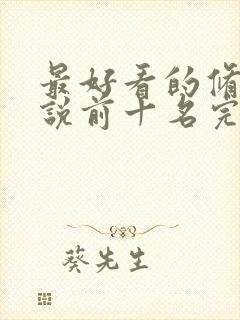 最好看的修
説前十名完
葵先生